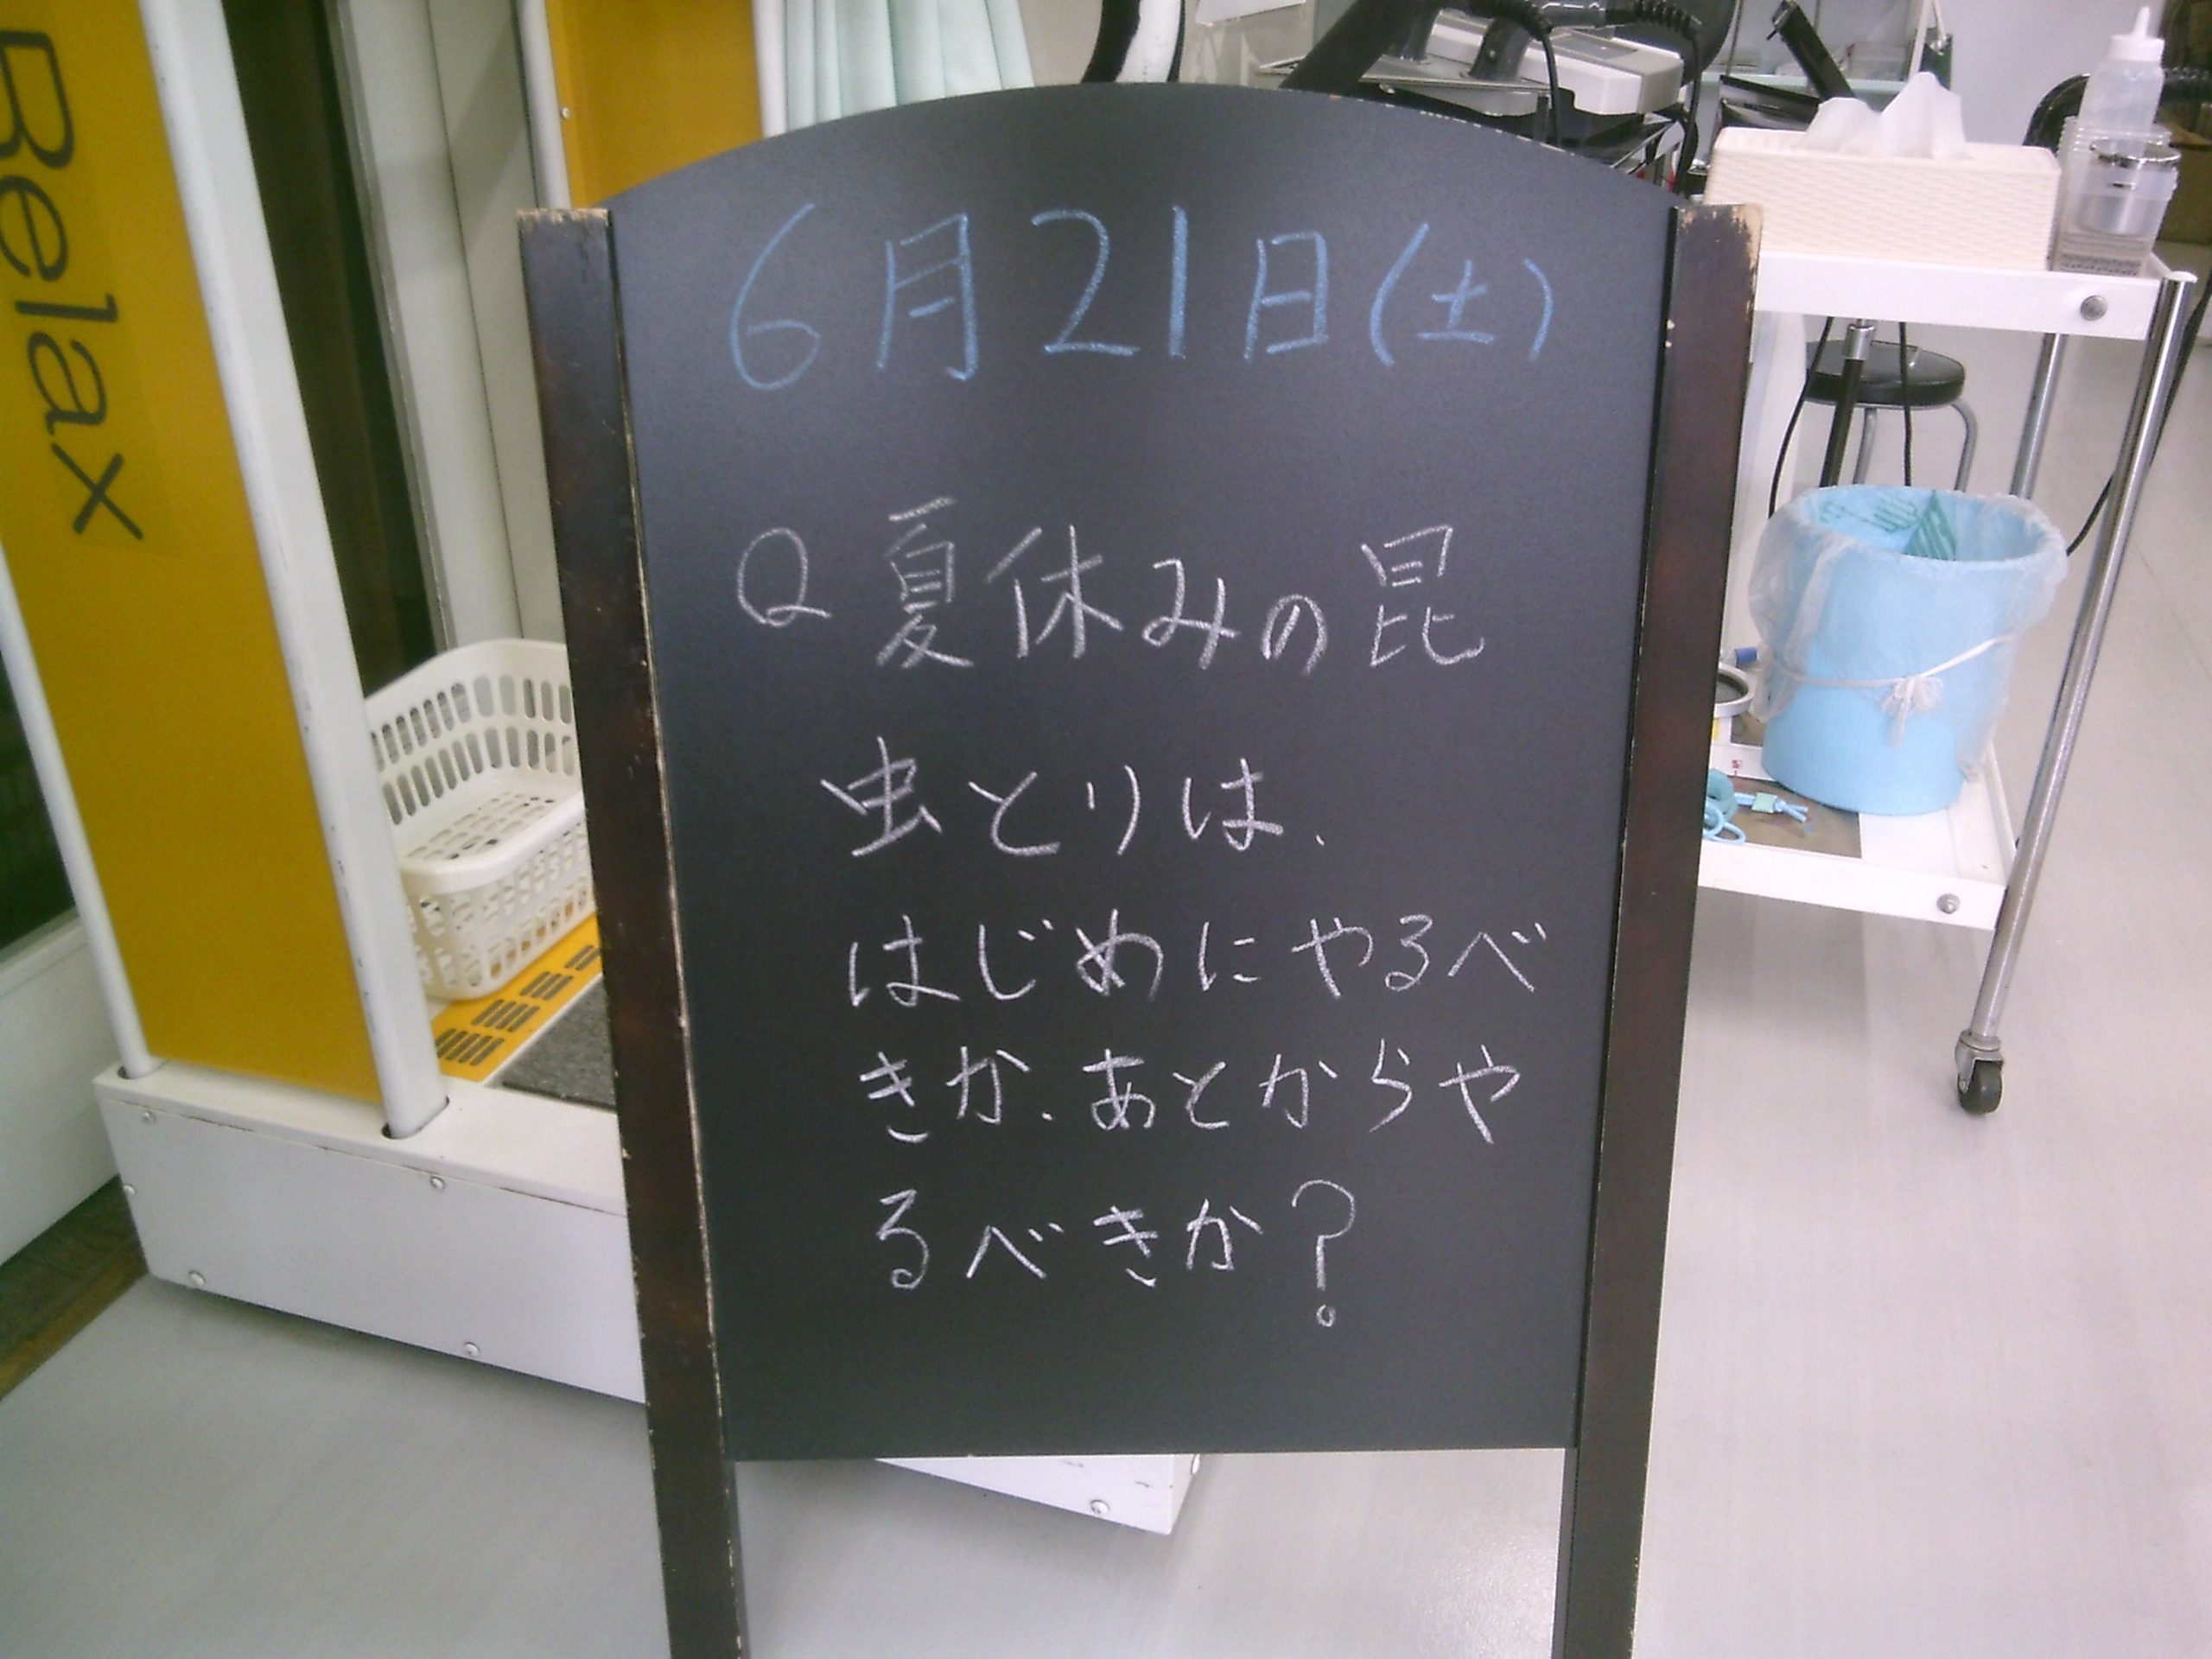 Belax
6月21日(土)
Q 夏休みの昆
虫とりは、
はじめにやるべ
きか、あとからや
るべきか?